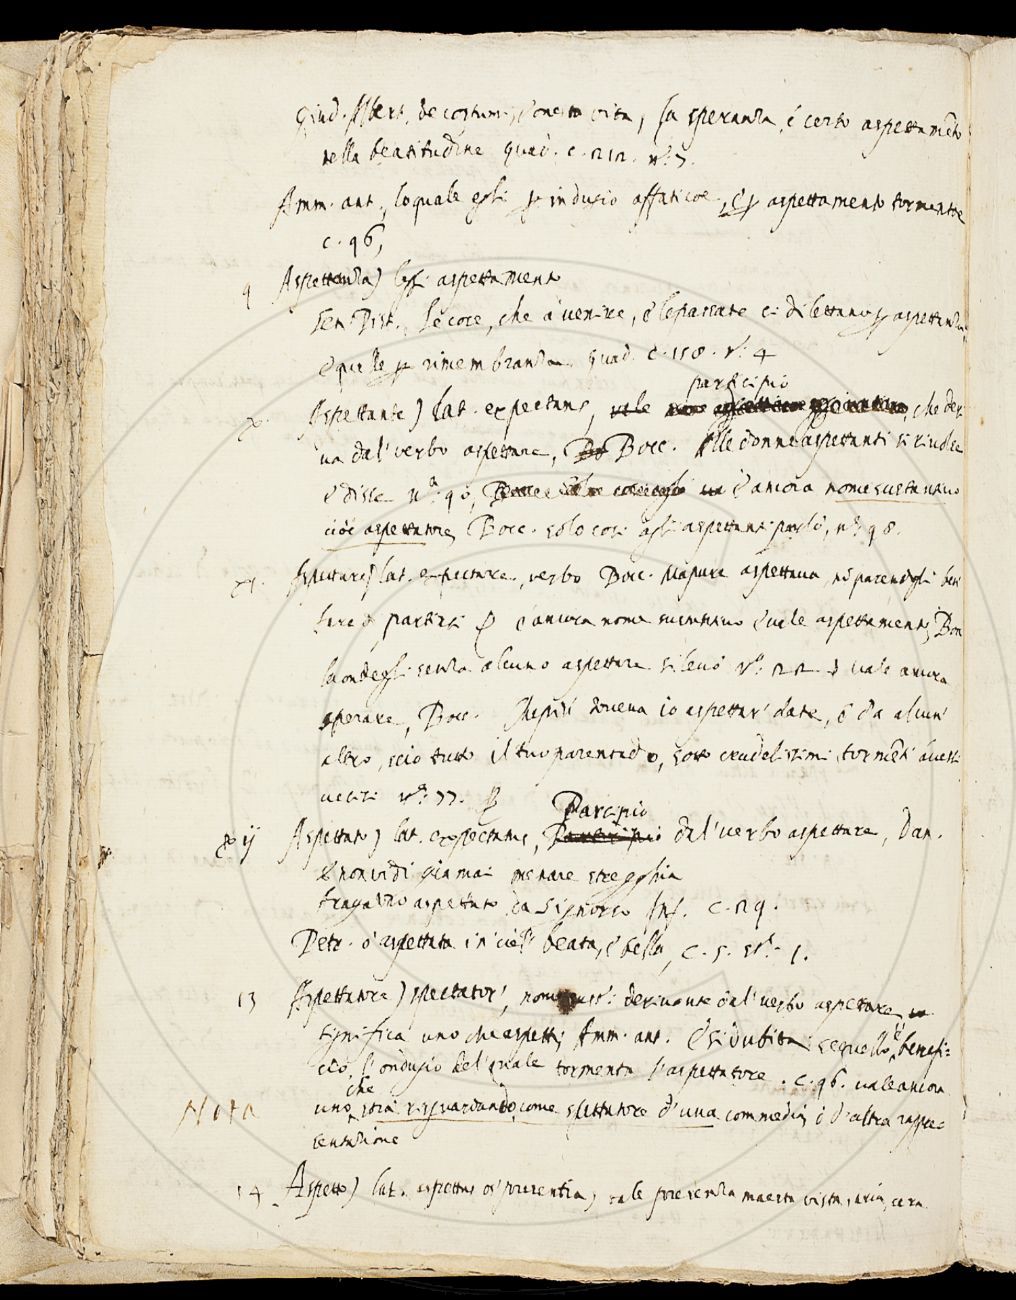 Giud. Albert. de costumi, e onesta vita, la speranza, è certo aspettamẽto
della beatitudine quad. c. 212. n.º 7.
Amm. ant., lo quale egli indugio affatica, e aspettamento tormenta
c. 96,
9 Aspettanza) legi aspettamento
Sen. Pist., le cose, che a venire, e le passate ci dilettano aspettanza,
e quelle rimembranza. quad. c. 158. n.º 4
x. Aspettante) lat. expectans, participio, che deri
va dal' verbo aspettare, Bocc. Alle donne aspettanti si rivolse
e disse n.ª 98, è ancora nome sustantivo
cioè aspettatore, Bocc. solo così agli aspettanti parlò, n.ª 98.
xi. Aspettare) lat. expectare, verbo Bocc. Ma pure aspettava, nè parendogli ben
fare di partirsi è ancora nome sustantivo e vale aspettamento, Bocc.
laonde egli senza alcuno aspettare si levò n.ª 22 vale ancora
sperare, Bocc. doveva io aspettar' da te, o da alcun'
altro, se io tutto il tuo parentado, sotto crudelissimi tormẽti avessi
uccisi n.ª 77.
xij Aspettato) lat. expectatus, Parcipio dal' verbo aspettare, Dan.
E non vidi giamai menare stregghia
a ragazzo aspettato da Signorso Inf. c. 29.
Petr. o aspettata in ciel' beata, e bella, c. 5. st.ª 1.
13 Aspettatore) spectator', nome sust. derivante dal' verbo aspettare
significa uno che aspetti, Amm. ant. E si dubita se quello è benefi-
cio, l'ondugio del' quale tormenta l'aspettatore. c. 96. vale ancora
Nota uno che stia risguardando, come spettatore d'una commedia, o d'altra rappre-
sentazione
14 Aspetto) lat. aspectus os' presentia, vale presenza vista, aria, cera